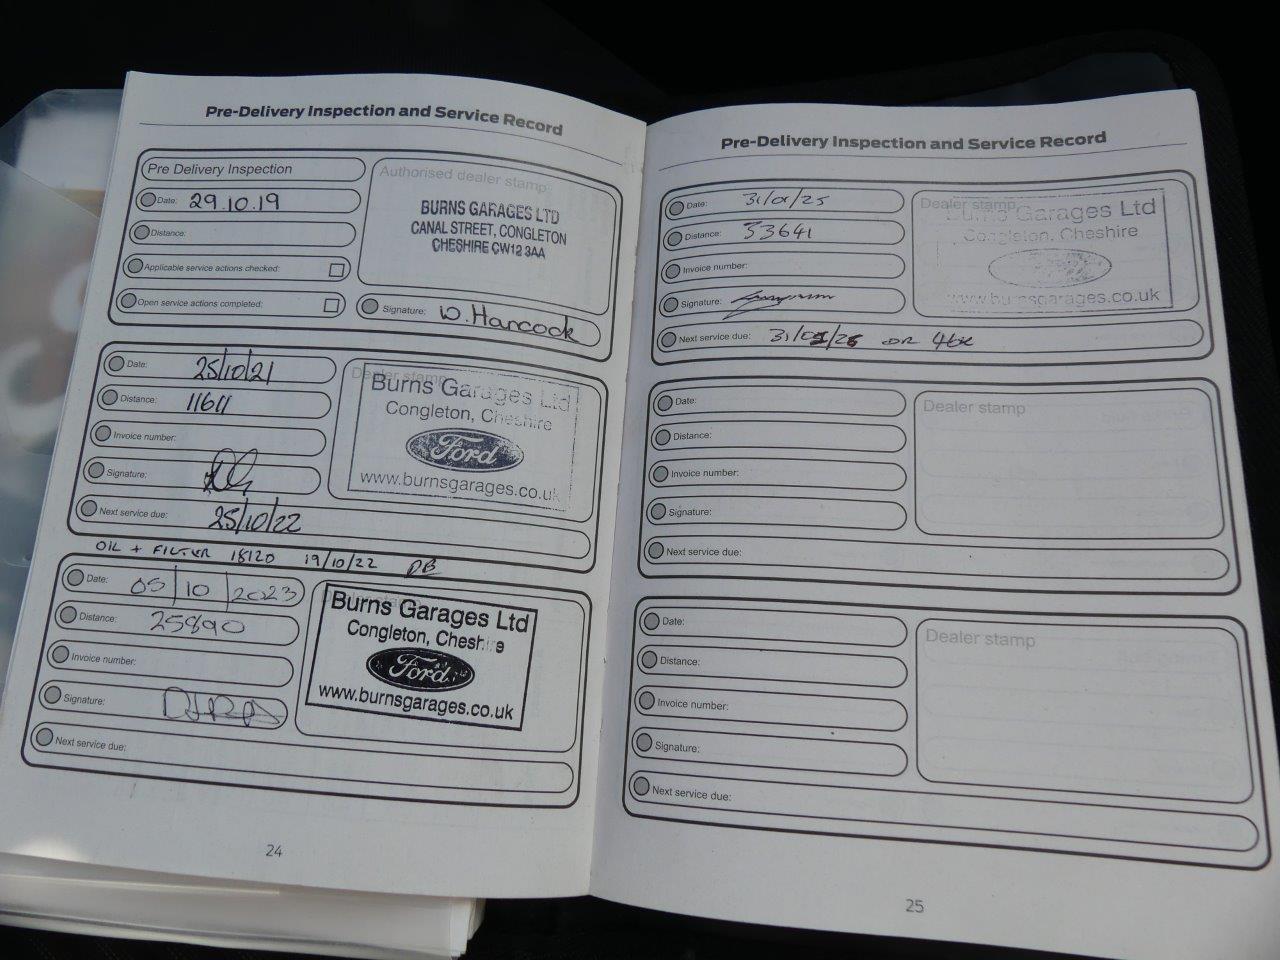 Pre-Delivery Inspection and Service Record
Pre Delivery Inspection
Date: 29.10.19
Distance:
Applicable service actions checked:
Open service actions completed:
Authorised dealer stamp
BURNS GARAGES LTD
CANAL STREET, CONGLETON
CHESHIRE CW12 3AA
Signature: W.Hancock
Date: 25/10/21
Distance: 11611
Invoice number:
Signature:
Next service due: 25/10/22
Dealer stamp
Burns Garages Ltd
Congleton, Cheshire
Ford
www.burnsgarages.co.uk
OIL + FILTER 18120 19/10/22 DB
Date: 05/10/2023
Distance: 25890
Invoice number:
Signature:
Next service due:
Burns Garages Ltd
Congleton, Cheshire
Ford
www.burnsgarages.co.uk
24
Pre-Delivery Inspection and Service Record
Date: 31/01/25
Distance: 33641
Invoice number:
Signature:
Next service due: 31/01/26 OR 46K
Dealer stamp
Burns Garages Ltd
Congleton, Cheshire
www.burnsgarages.co.uk
Date:
Distance:
Invoice number:
Signature:
Next service due:
Dealer stamp
Date:
Distance:
Invoice number:
Signature:
Next service due:
Dealer stamp
25